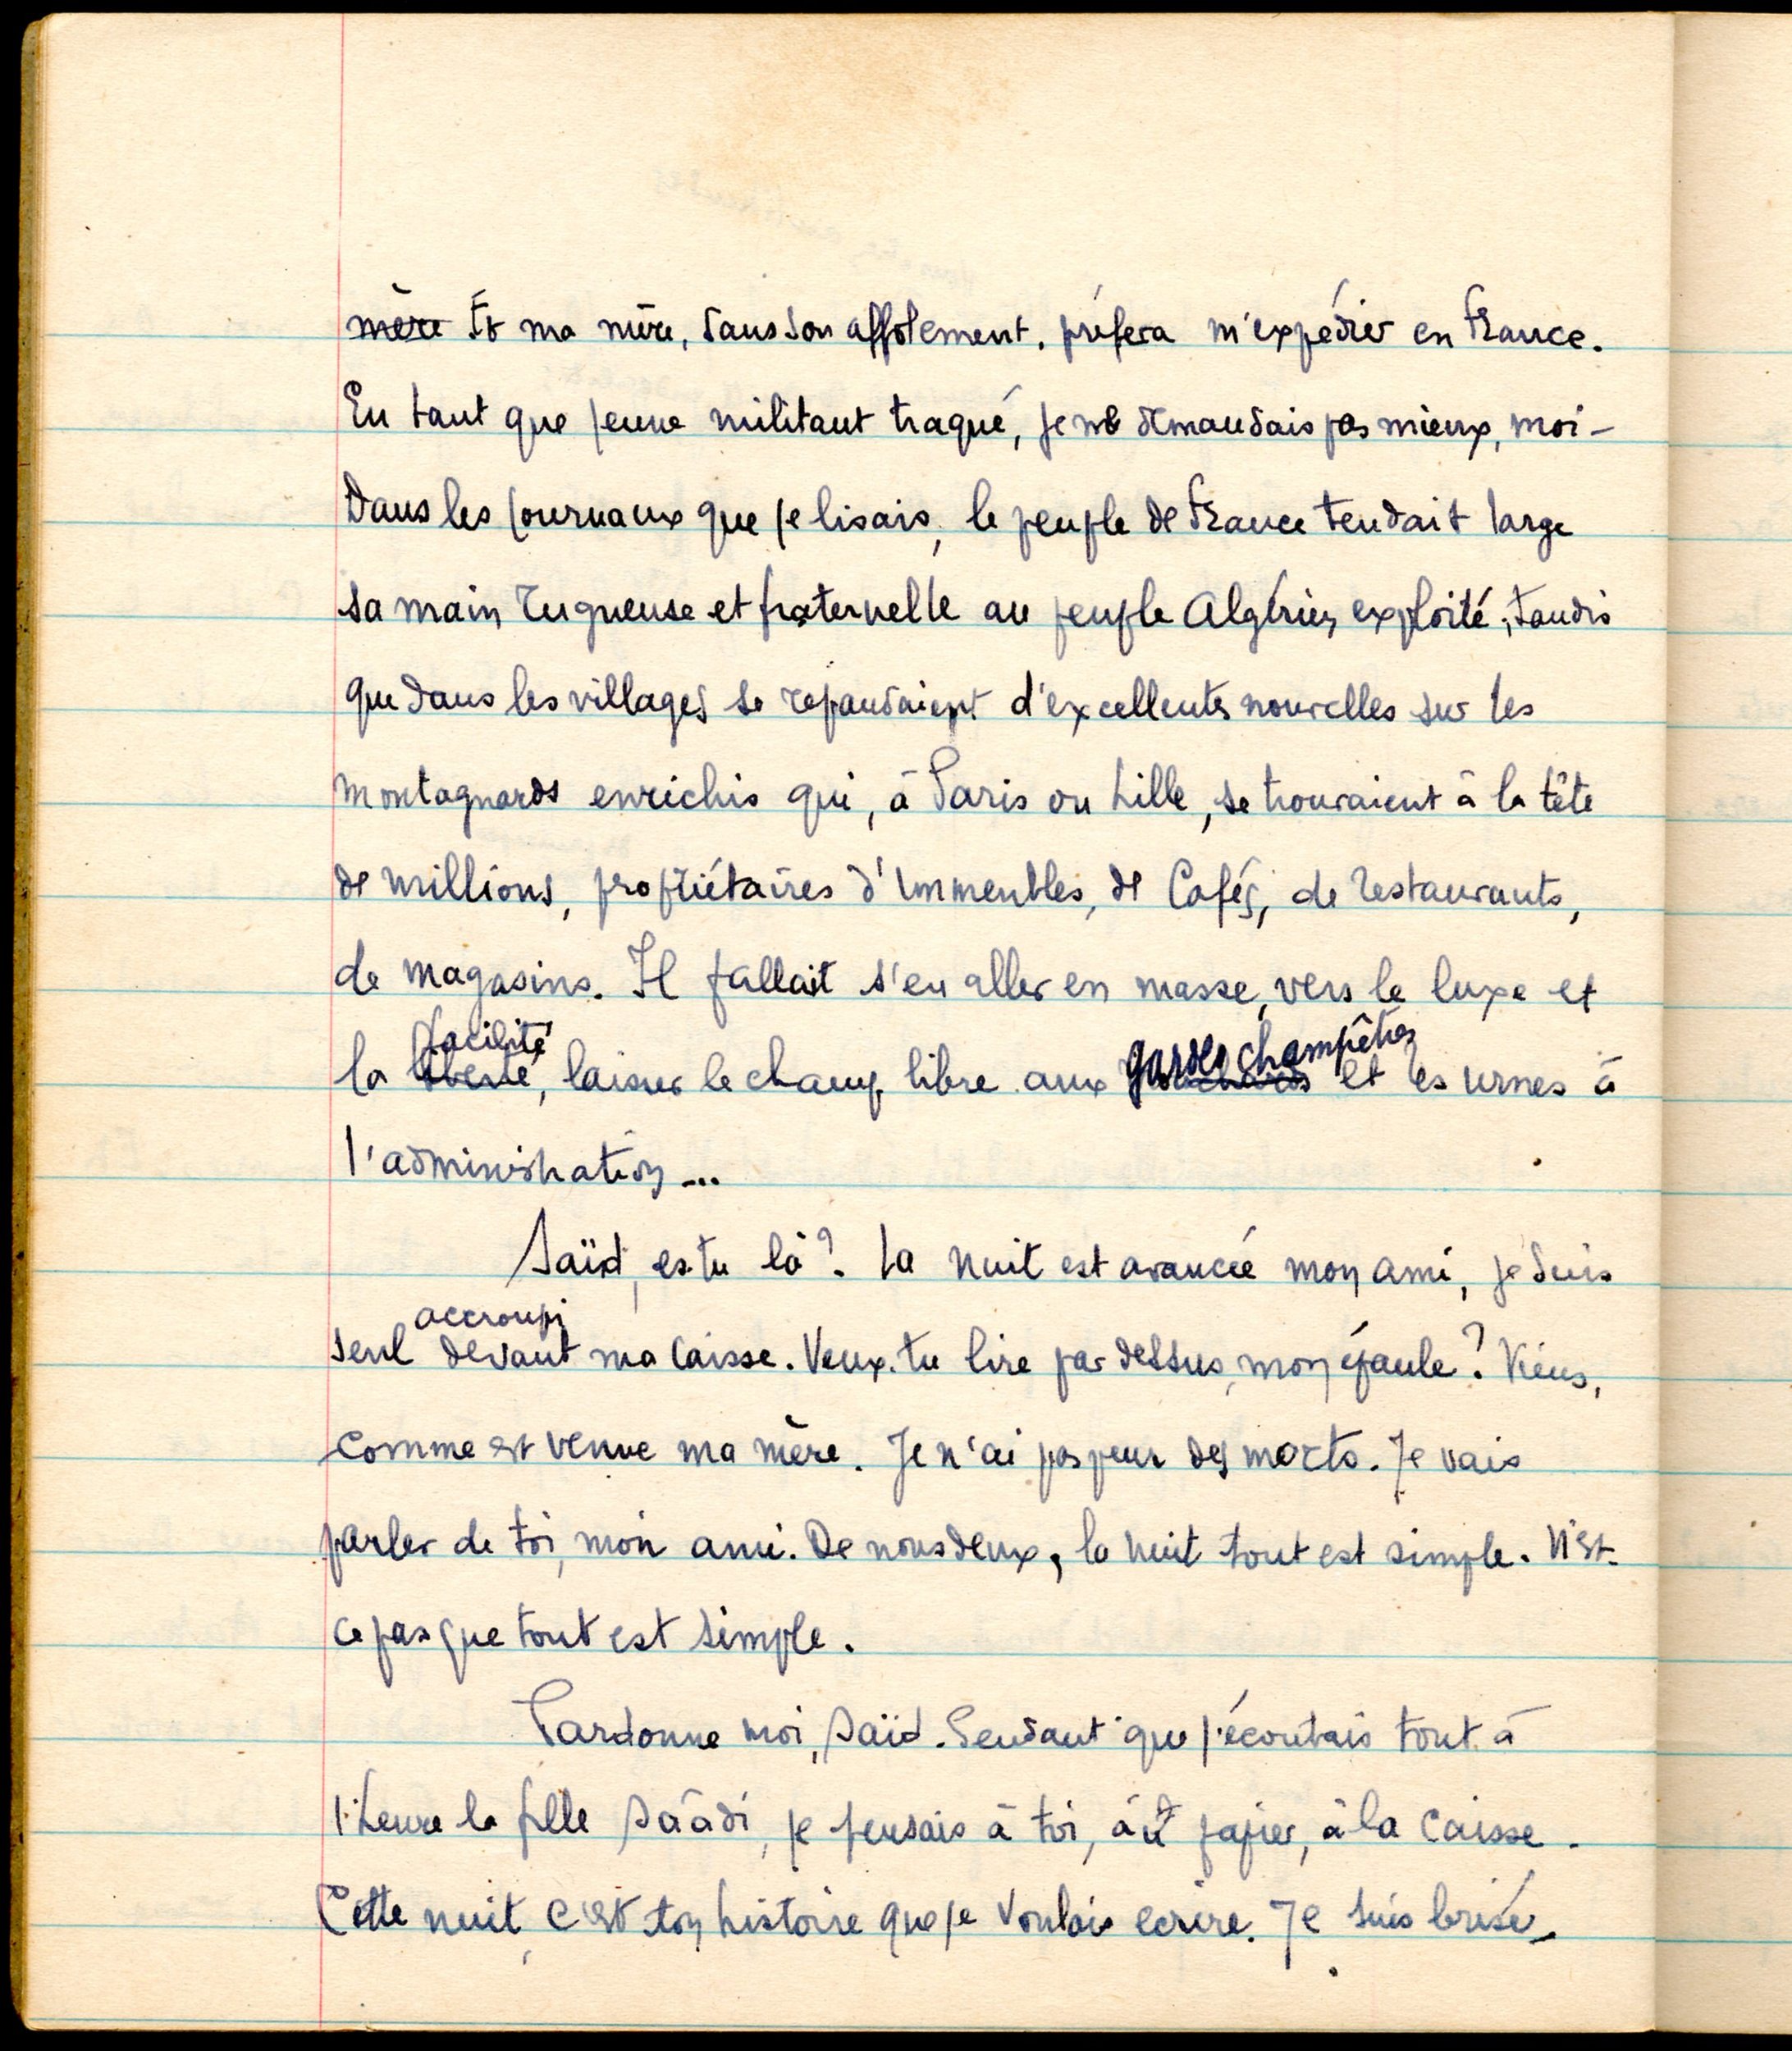 mère Et ma mère, dans son affolement, préfera m'expédier en France.
En tant que jeune militant traqué, je ne demandais pas mieux, moi -
Dans les journaux que je lisais, le peuple de France tendait large
sa main rugueuse et fraternelle au peuple Algérien exploité, tandis
que dans les villages se repandaient d'excellentes nouvelles sur les
montagnards enrichis qui, à Paris ou Lille, se trouvaient à la tête
de millions, propriétaires d'immeubles, de Cafés, de restaurants,
de magasins. Il fallait s'en aller en masse, vers le luxe et
la liberté facilité, laisser le champ libre aux gardes champêtres et les urnes à
l'administration...
Saïd, es-tu là ? La nuit est avancée mon ami, je suis
seul accroupi devant ma caisse. Veux-tu lire par dessus, mon épaule ? Viens,
comme est venue ma mère. Je n'ai pas peur des morts. Je vais
parler de toi, mon ami. De nous deux, la nuit tout est simple. N'est-
ce pas que tout est simple.
Pardonne moi, Saïd. Pendant que j'écoutais tout à
l'heure la fille Sâadi, je pensais à toi, à papier, à la caisse.
Cette nuit, c'est ton histoire que je voulais ecrire. Je suis brisé,